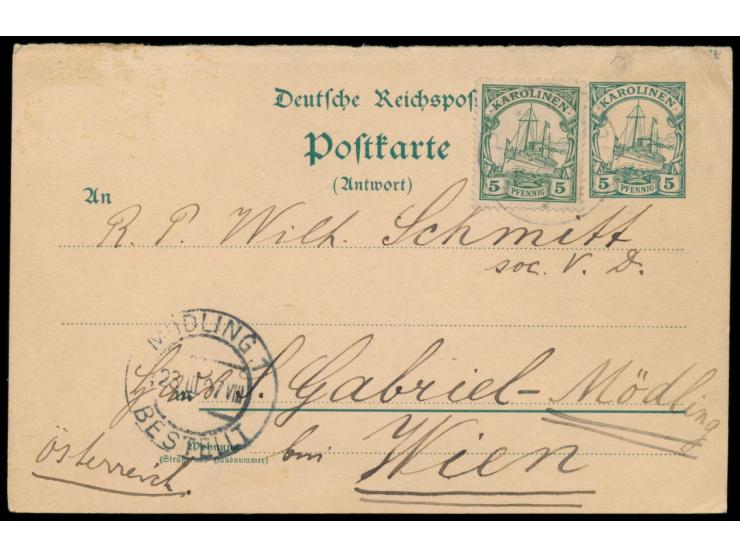 Deutsche Reichspos
KAROLINEN KAROLINEN
Postkarte
5 PFENNIG 5 5 PFENNIG 5
(Antwort)
An
R. P. Wilh. Schmitt
soc. V. D.
MÖDLING 1
S. Gabriel-Mödling
in
BESTELLT
Wohnung
(Straße und Hausnummer)
bei Wien
Österreich.